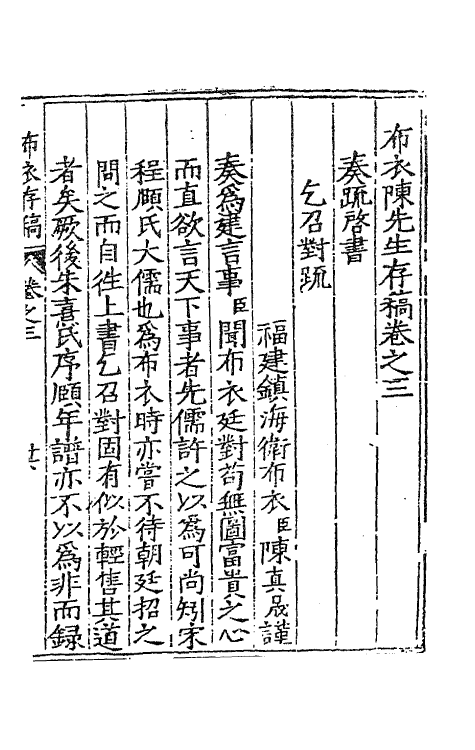 布衣陳先生存稿卷之三
奏疏啓書
乞召對疏
福建鎮海衛布衣臣陳真晟謹
奏爲建言事臣聞布衣廷對苟無圖富貴之心
而直欲言天下事者先儒許之以爲可尚矧宋
程頤氏大儒也爲布衣時亦嘗不待朝廷招之
問之而自徃上書乞召對固有似於輕售其道
者矣厥後朱熹氏序頤年譜亦不以爲非而録
布衣存稿 卷之三